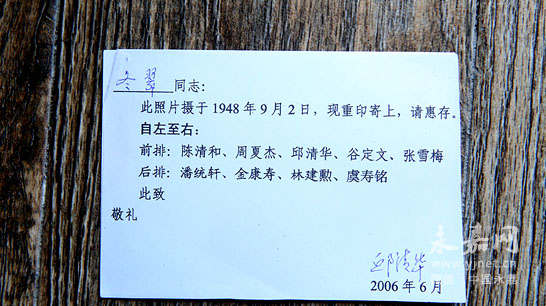 冬翠同志：
此照片摄于1948年9月2日，现重印寄上，请惠存。
自左至右：
前排：陈清和、周夏杰、邱清华、谷定文、张雪梅
后排：潘统轩、金康寿、林建勲、虞寿铭
此致
敬礼
邱清华
2006年6月
永嘉网
www.yjnet.cn